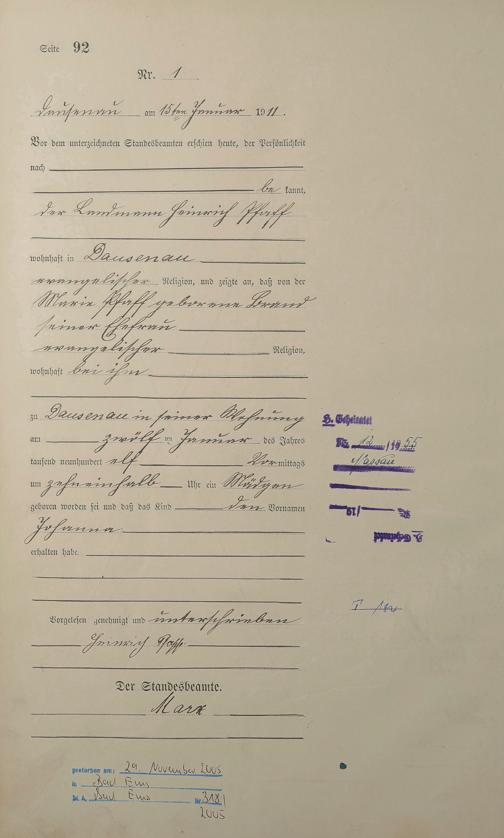 Seite 92
Nr. 1
Dausenau am 15ten Januar 1911.
Vor dem unterzeichneten Standesbeamten erschien heute, der Persönlichkeit
nach
be kannt,
der Landmann Heinrich Pfaff
wohnhaft in Dausenau
evangelischer Religion, und zeigte an, daß von der
Marie Pfaff geborene Brand
seiner Ehefrau
evangelischer Religion,
wohnhaft bei ihm
zu Dausenau in seiner Wohnung
am zwölf ten Januar des Jahres
tausend neunhundert elf Vormittags
um zehneinhalb Uhr ein Mädchen
geboren worden sei und daß das Kind den Vornamen
Johanna
erhalten habe.
Vorgelesen, genehmigt und unterschrieben
Heinrich Pfaff
Der Standesbeamte.
Marx
H. Geheiratet
Nr. 12 /19 55
Nassau
Nr. /19
H. Geheiratet
gestorben am: 29. November 2005
in Bad Ems
St. A. Bad Ems Nr. 318/
2005